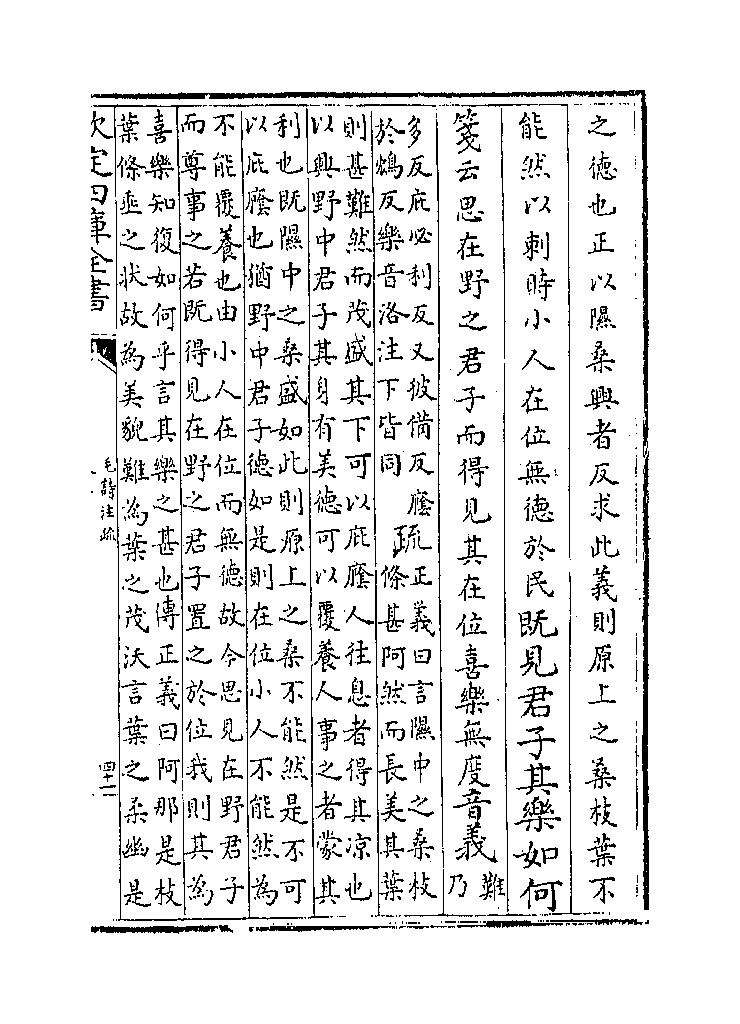 之德也正以隰桑興者反求此義則原上之桑枝葉不
能然以刺時小人在位無德於民既見君子其樂如何
箋云思在野之君子而得見其在位喜樂無度音義難
乃
多反庇必利反又彼備反廕
於鴆反樂音洛注下皆同
疏正義曰言隰中之桑枝
條甚阿然而長美其葉
則甚難然而茂盛其下可以庇廕人往息者得其凉也
以興野中君子其身有美德可以覆養人事之者蒙其
利也既隰中之桑盛如此則原上之桑不能然是不可
以庇廕也猶野中君子德如是則在位小人不能然為
不能覆養也由小人在位而無德故今思見在野君子
而尊事之若既得見在野之君子置之於位我則其為
喜樂知復如何乎言其樂之甚也傳正義曰阿那是枝
葉條垂之狀故為美貌難為葉之茂沃言葉之柔幽是
欽定四庫全書
毛詩注疏
四十二